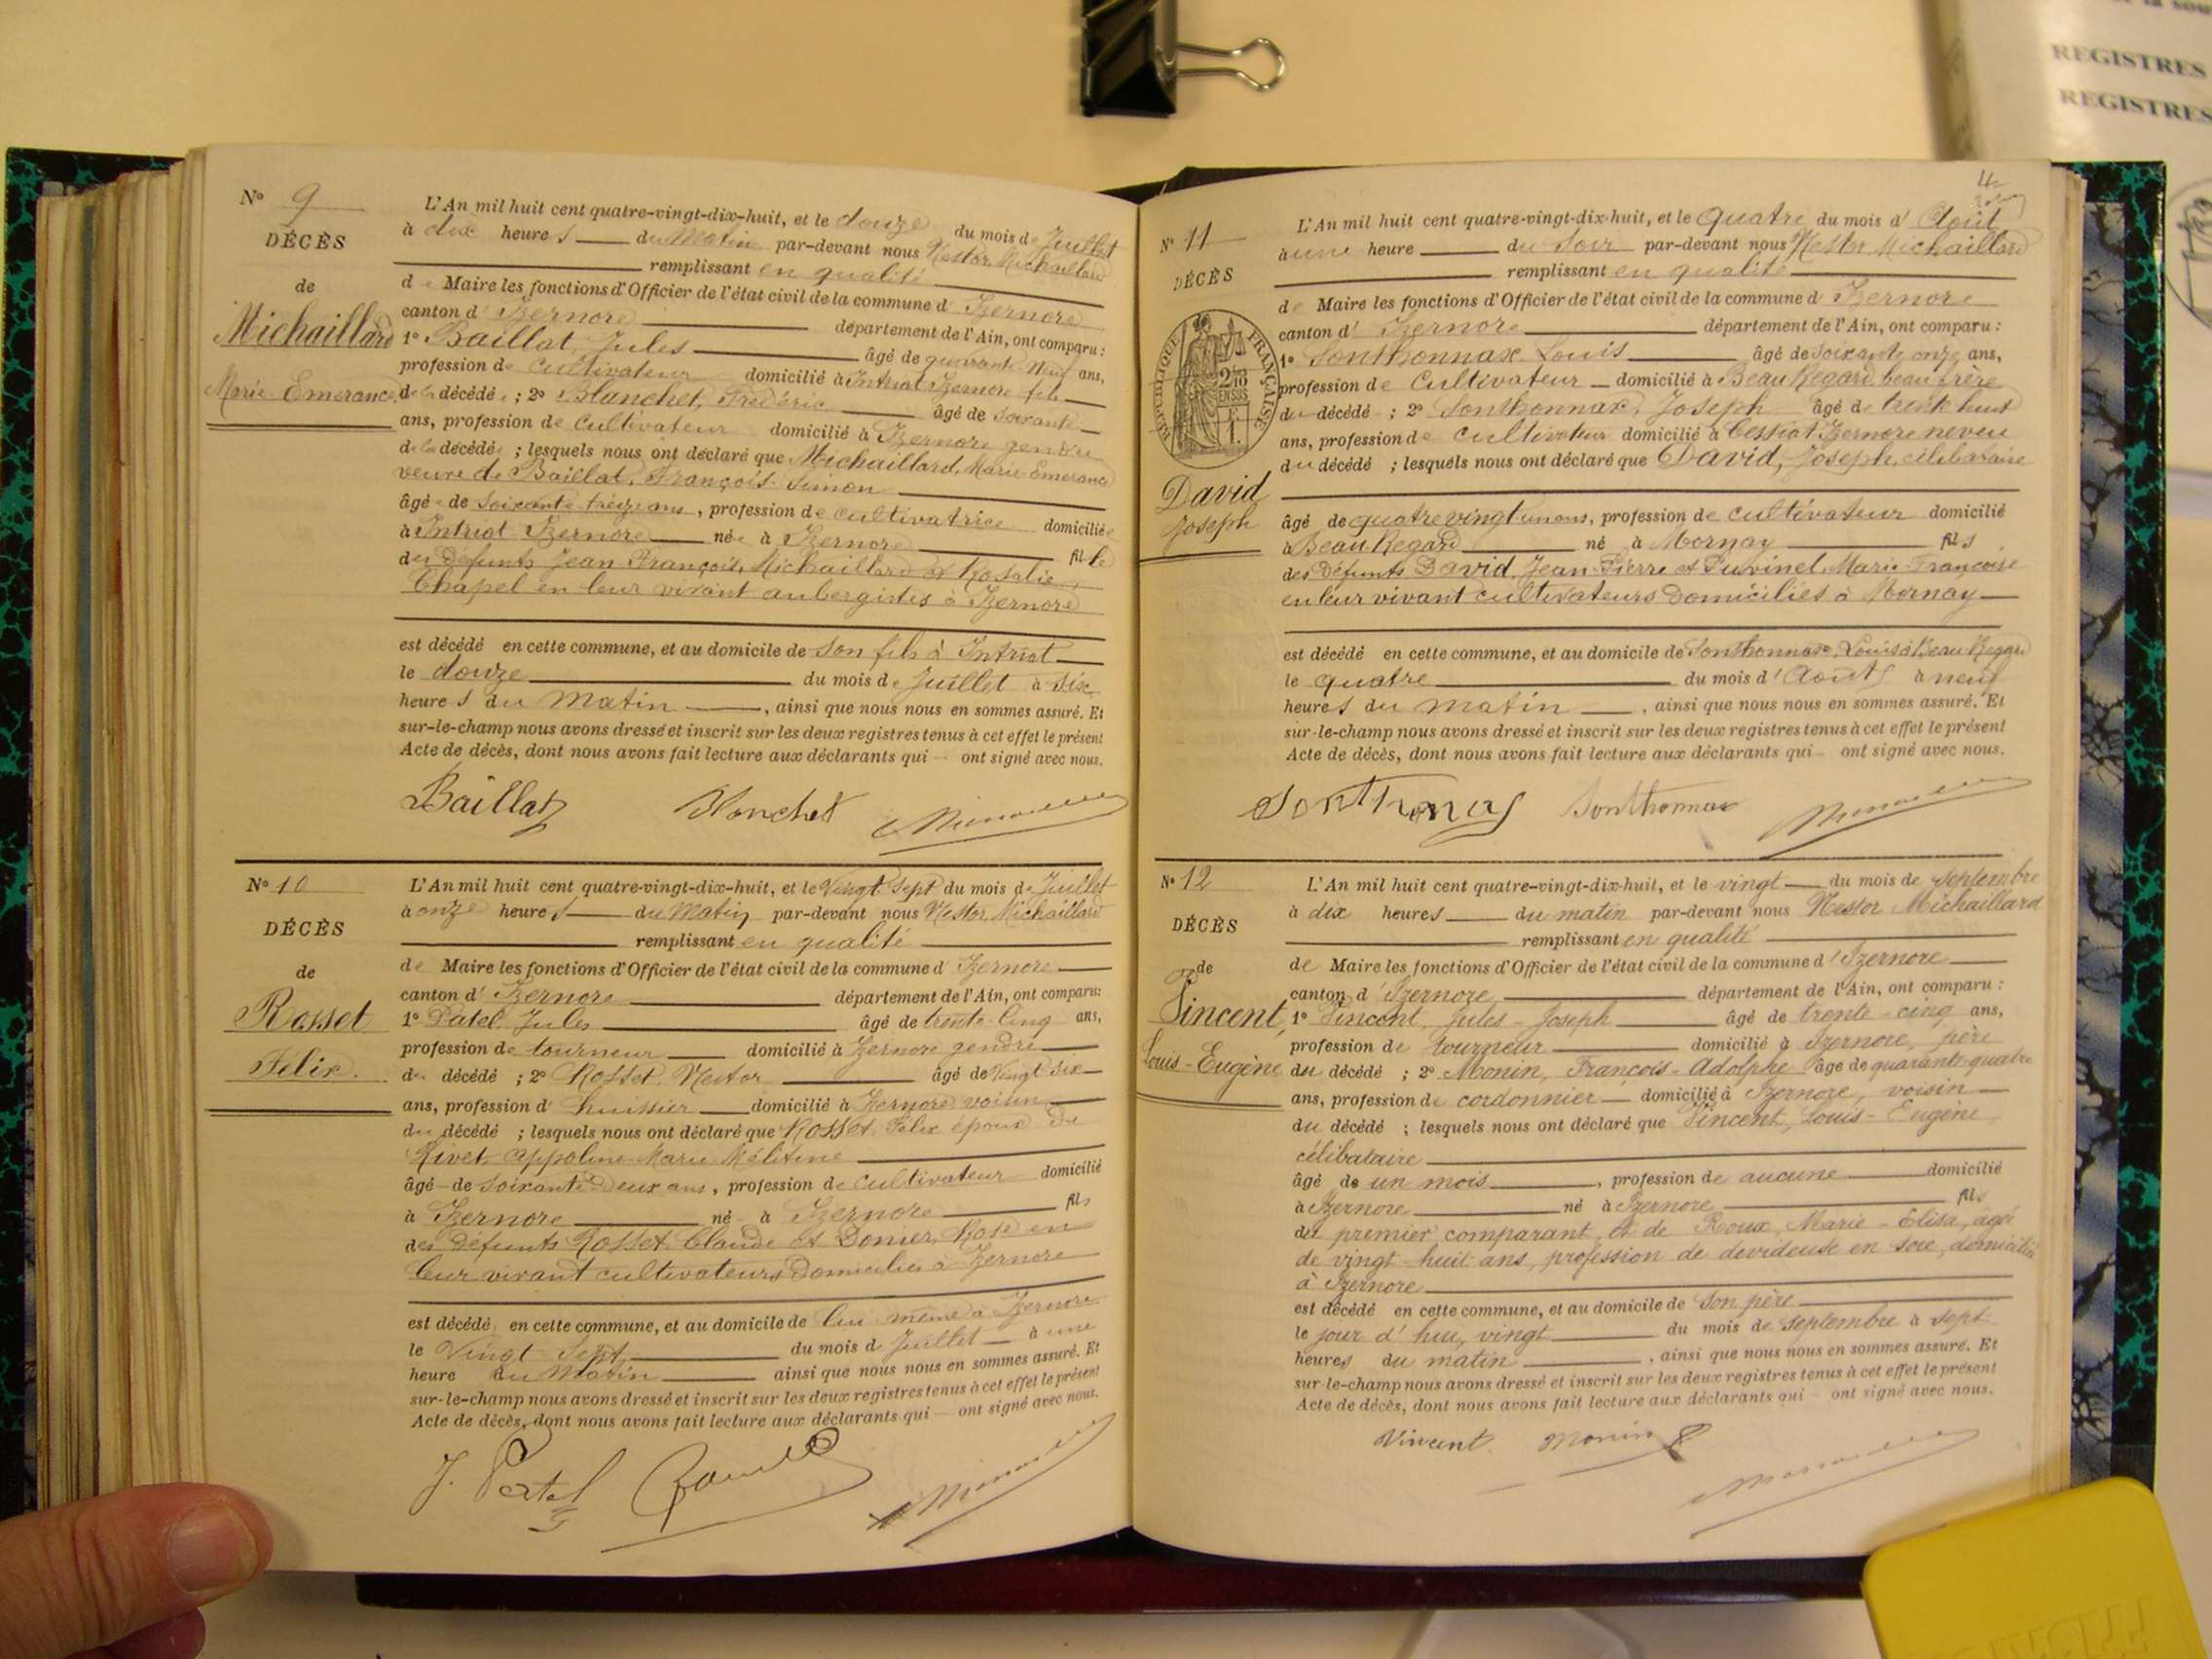 N° 9
DÉCÈS
de
Michaillard
Marie Emerance
L'An mil huit cent quatre-vingt-dix-huit, et le douze du mois de Juillet
à dix heures du Matin par-devant nous Nestor Michaillard
remplissant en qualité
de Maire les fonctions d'Officier de l'état civil de la commune d'Izernore
canton d'Izernore département de l'Ain, ont comparu :
1° Baillat, Jules âgé de quarante neuf ans,
profession de Cultivateur domicilié à Intriat Izernore fils
de la décédée ; 2° Blanchet, Frédéric âgé de soixante
ans, profession de Cultivateur domicilié à Izernore gendre
de la décédée ; lesquels nous ont déclaré que Michaillard, Marie Emerance
veuve de Baillat, François Simon
âgée de soixante treize ans, profession de cultivatrice domiciliée
à Intriat Izernore née à Izernore fille
des défunts Jean François Michaillard et Rosalie
Chapel en leur vivant aubergistes à Izernore
est décédé en cette commune, et au domicile de son fils à Intriat
le douze du mois de Juillet à six
heures du Matin, ainsi que nous nous en sommes assuré. Et
sur-le-champ nous avons dressé et inscrit sur les deux registres tenus à cet effet le présent
Acte de décès, dont nous avons fait lecture aux déclarants qui ont signé avec nous.
Baillat Blanchet
N° 10
DÉCÈS
de
Rosset
Felix.
L'An mil huit cent quatre-vingt-dix-huit, et le Vingt sept du mois de Juillet
à onze heures du Matin par-devant nous Nestor Michaillard
remplissant en qualité
de Maire les fonctions d'Officier de l'état civil de la commune d'Izernore
canton d'Izernore département de l'Ain, ont comparu:
1° Patel Jules âgé de trente cinq ans,
profession de tourneur domicilié à Izernore gendre
du décédé ; 2° Rosset, Nestor âgé de Vingt six
ans, profession d'huissier domicilié à Izernore voisin
du décédé ; lesquels nous ont déclaré que Rosset, Felix époux de
Rivet, Appoline Marie Mélitine
âgé de soixante deux ans, profession de cultivateur domicilié
à Izernore né à Izernore fils
des défunts Rosset Claude et Donier, Rose en
leur vivant cultivateurs domiciliés à Izernore
est décédé en cette commune, et au domicile de lui même à Izernore
le Vingt Sept du mois de Juillet à une
heure du Matin ainsi que nous nous en sommes assuré. Et
sur-le-champ nous avons dressé et inscrit sur les deux registres tenus à cet effet le présent
Acte de décès, dont nous avons fait lecture aux déclarants qui ont signé avec nous.
J. Patel
4
N° 11
DÉCÈS
RÉPUBLIQUE FRANÇAISE
David
Joseph
L'An mil huit cent quatre-vingt-dix-huit, et le Quatre du mois d'Août
à une heure du Soir par-devant nous Nestor Michaillard
remplissant en qualité
de Maire les fonctions d'Officier de l'état civil de la commune d'Izernore
canton d'Izernore département de l'Ain, ont comparu :
1° Sonthonnax Louis âgé de soixante onze ans,
profession de Cultivateur domicilié à Beau Regard beau frère
du décédé ; 2° Sonthonnax, Joseph âgé de trente huit
ans, profession de cultivateur domicilié à Cessiat Izernore neveu
du décédé ; lesquels nous ont déclaré que David, Joseph, célibataire
âgé de quatre vingt un ans, profession de cultivateur domicilié
à Beau Regard né à Mornay fils
des défunts David Jean Pierre et Puvinel Marie Françoise
en leur vivant cultivateurs domiciliés à Mornay
est décédé en cette commune, et au domicile de Sonthonnax Louis à Beau Regard
le quatre du mois d'Août à neuf
heures du matin, ainsi que nous nous en sommes assuré. Et
sur-le-champ nous avons dressé et inscrit sur les deux registres tenus à cet effet le présent
Acte de décès, dont nous avons fait lecture aux déclarants qui ont signé avec nous.
Sonthonnax
N° 12
DÉCÈS
de
Vincent,
Louis-Eugène
L'An mil huit cent quatre-vingt-dix-huit, et le vingt du mois de Septembre
à dix heures du matin par-devant nous Nestor Michaillard
remplissant en qualité
de Maire les fonctions d'Officier de l'état civil de la commune d'Izernore
canton d'Izernore département de l'Ain, ont comparu :
1° Vincent, Jules-Joseph âgé de trente-cinq ans,
profession de tourneur domicilié à Izernore, père
du décédé ; 2° Monin, François-Adolphe âgé de quarante-quatre
ans, profession de cordonnier domicilié à Izernore, voisin
du décédé ; lesquels nous ont déclaré que Vincent, Louis-Eugène,
célibataire
âgé de un mois, profession de aucune domicilié
à Izernore né à Izernore fils
du premier comparant, et de Roux, Marie-Elisa, âgée
de vingt-huit ans, profession de dévideuse en soie, domiciliée
à Izernore
est décédé en cette commune, et au domicile de son père
le jour d'hui, vingt du mois de Septembre à sept
heures du matin, ainsi que nous nous en sommes assuré. Et
sur-le-champ nous avons dressé et inscrit sur les deux registres tenus à cet effet le présent
Acte de décès, dont nous avons fait lecture aux déclarants qui ont signé avec nous.
Vincent Monin
REGISTRES
REGISTRES